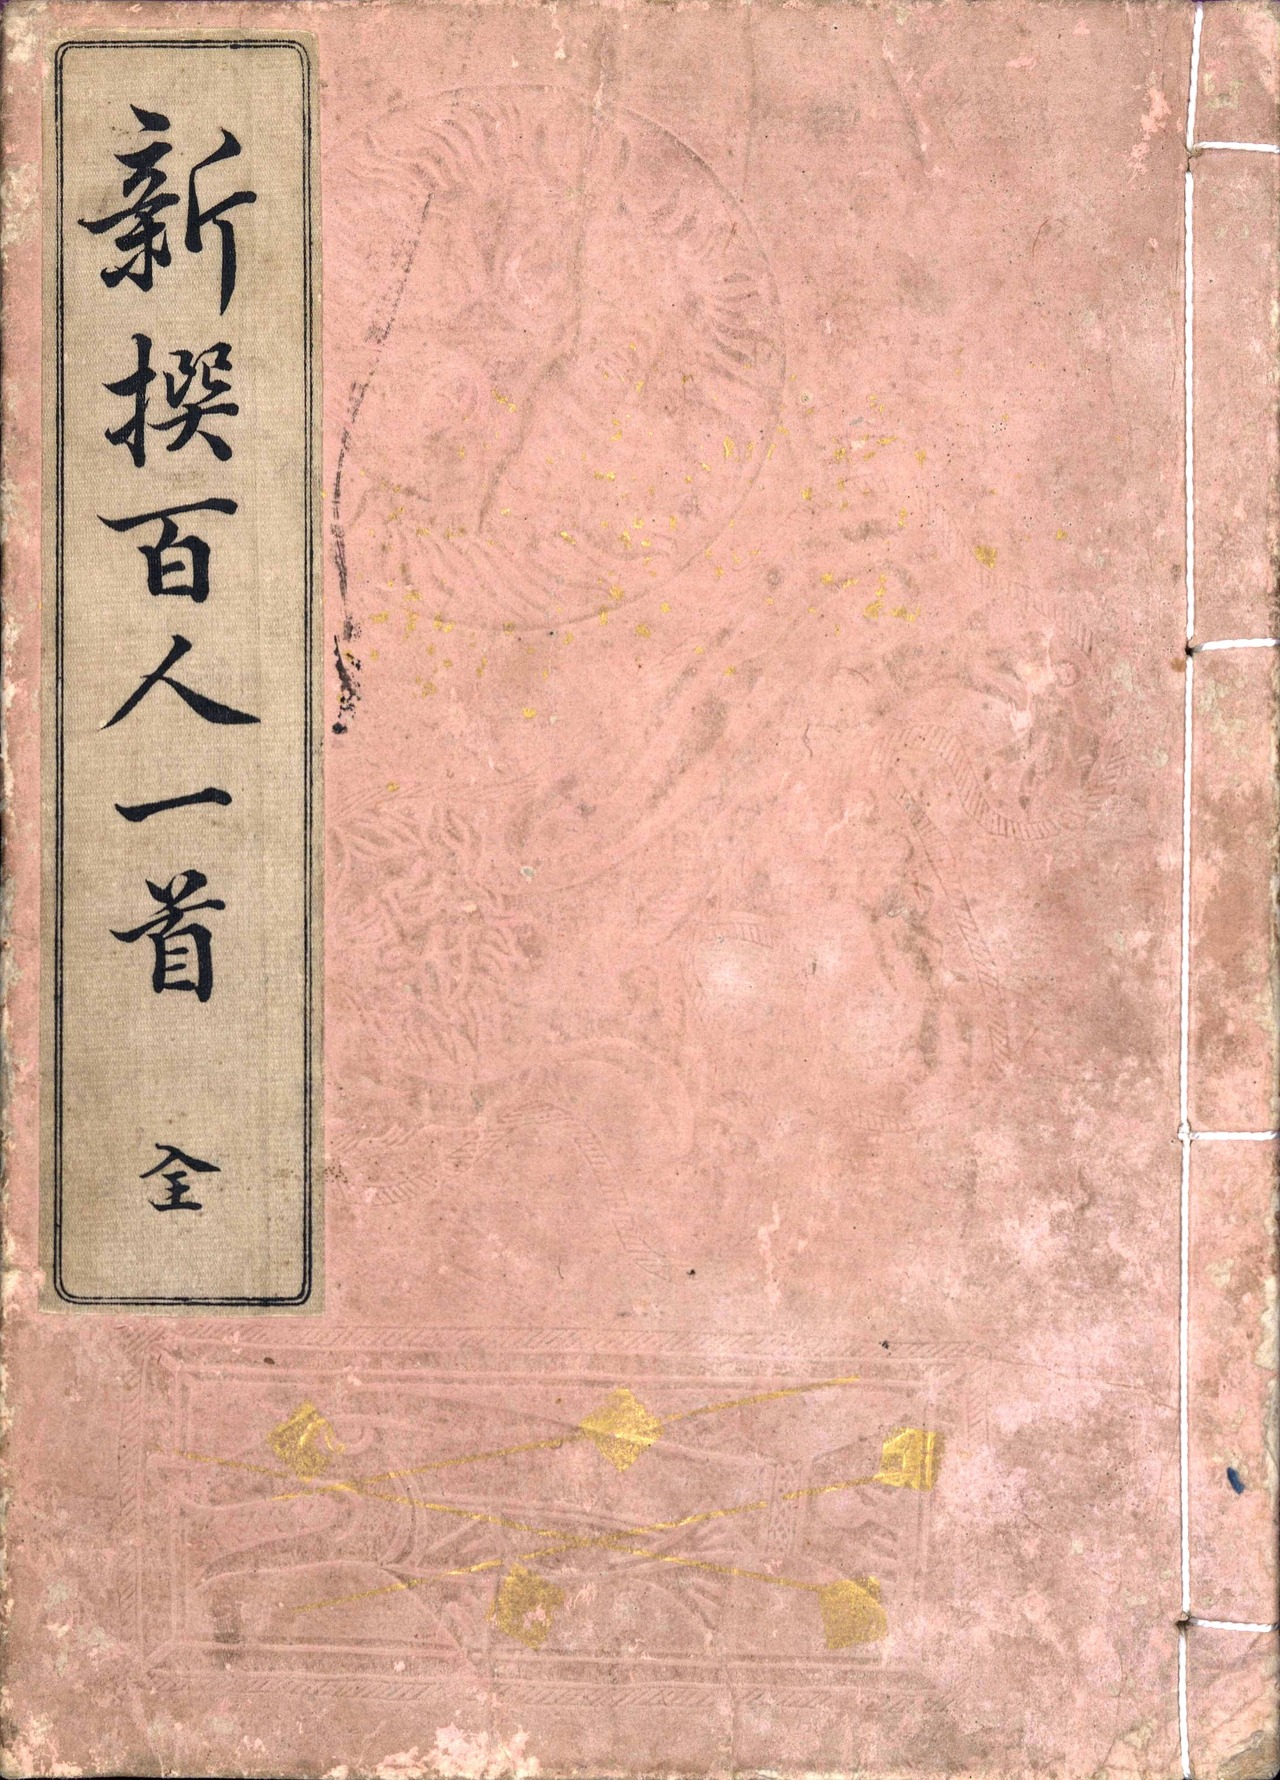 新撰百人一首
全